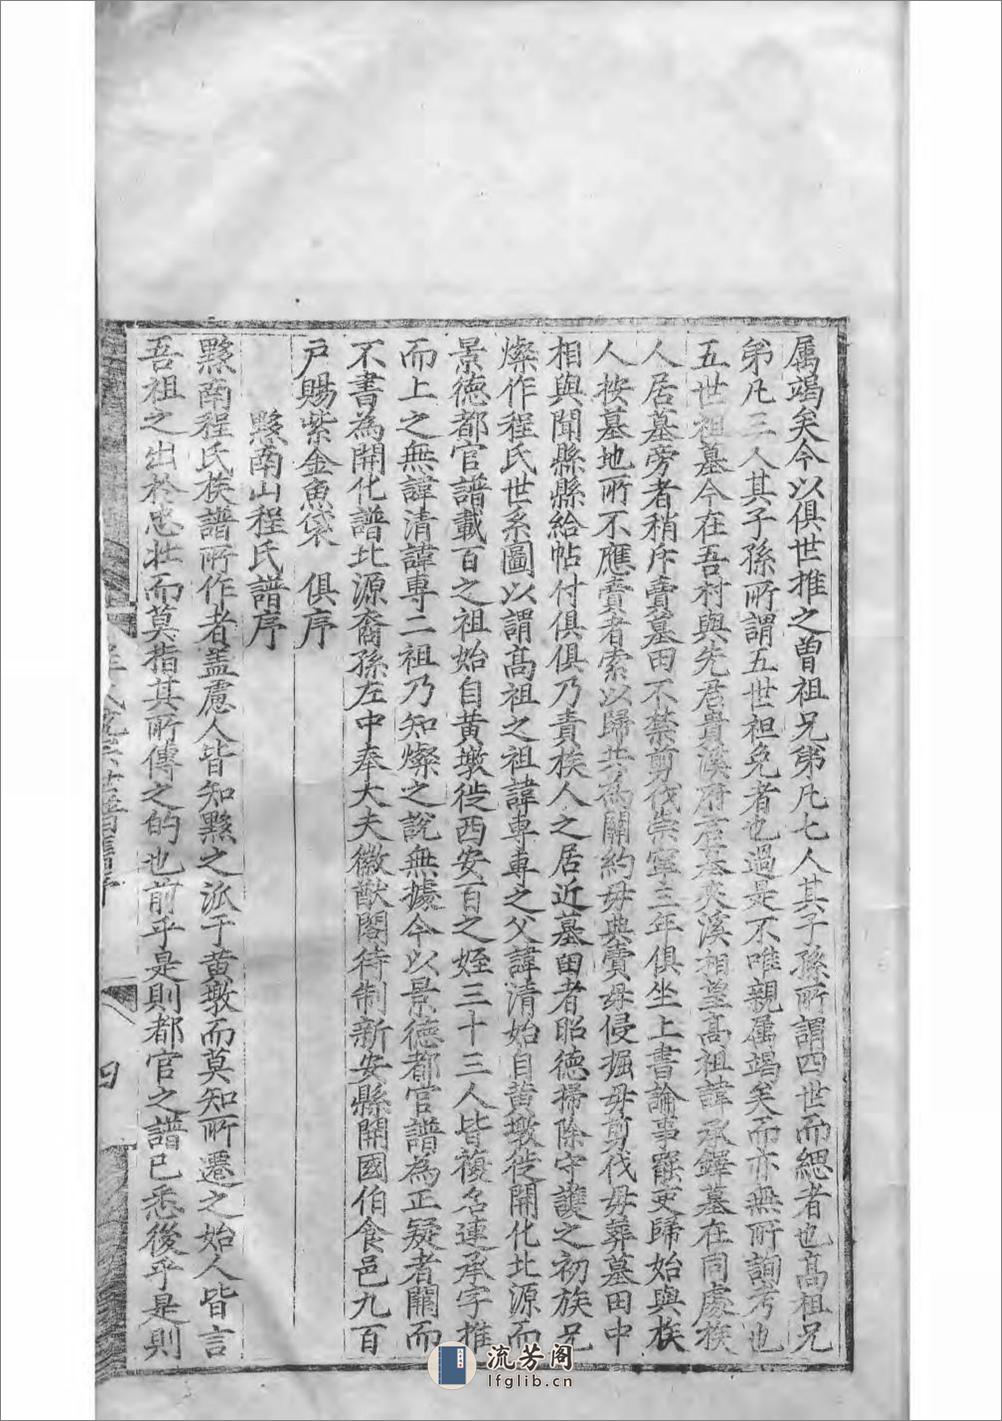 属竭矣今以俱世推之曽祖兄弟凡七人其子孫所謂四世而緦者也髙祖兄
弟凡三人其子孫所謂五世袒免者也過是不唯親属竭矣而亦無所詢考也
五世祖墓今在吾村與先君貴溪府君墓夾溪相望髙祖諱承鐸墓在同處族
人居墓旁者稍斥賣墓田不禁剪伐崇寧三年俱坐上書論事罷吏歸始與族
人按墓地所不應賣者索以歸共為關約毋典賣毋侵掘毋剪伐毋葬墓田中
相與聞縣縣給帖付俱俱乃責族人之居近墓田者昭德掃除守護之初族兄
燦作程氏世系圖以謂髙祖之祖諱專專之父諱清始自黄墩徙開化北源而
景德都官譜載百之祖始自黄墩徙西安百之姪三十三人皆複名連承字推
而上之無諱清諱專二祖乃知燦之説無據今以景德都官譜為正疑者闕而
不書為開化譜北源裔孫左中奉大夫徽猷閣待制新安縣開國伯食邑九百
戸賜紫金魚袋 俱序
黟南山程氏譜序
黟南程氏族譜所作者盖慮人皆知黟之派于黄墩而莫知所遷之始人皆言
吾祖之出於忠壮而莫指其所傳之的也前乎是則都官之譜已悉後乎是則
四
流芳阁
lfglib.cn